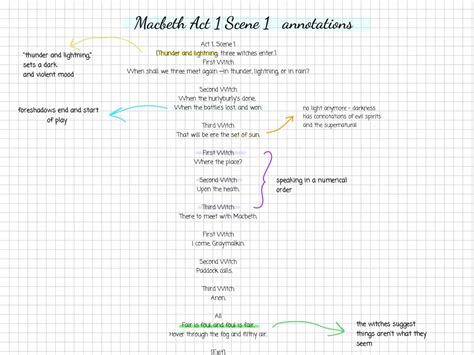 Macbeth Act 1 Scene 1 annotations
Act 1, Scene 1
(Thunder and lightning, three witches enter)
First Witch
When shall we three meet again —in thunder, lightning, or in rain?
"thunder and lightning,"
sets a dark
and violent mood
Second Witch
When the hurlyburly's done,
When the battle's lost, and won.
foreshadows end and start
of play
Third Witch
That will be ere the set of sun.
no light anymore - darkness
has connotations of evil spirits
and the supernatural
First Witch
Where the place?
Second Witch
Upon the heath.
Third Witch
There to meet with Macbeth.
speaking in a numerical
order
First Witch
I come, Graymalkin.
Second Witch
Paddock calls.
Third Witch
Anon.
All
Fair is foul and foul is fair,
Hover through the fog and filthy air.
(Exit)
the witches suggest
things aren't what they
seem